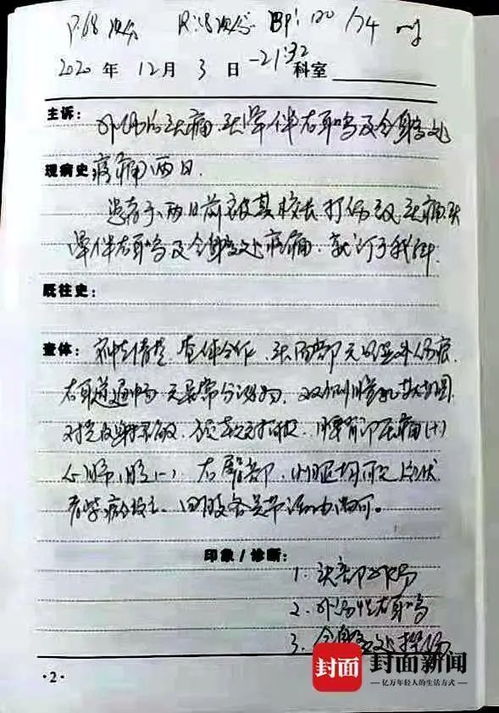 P:68次/分 R:18次/分 BP:120/74
2020 年 12 月 3 日 -21:32 科室
主诉: 外伤后头痛、头晕伴右耳鸣及全身多处
现病史 疼痛两日.
患者于两日前被其校长打伤致头痛头
晕伴右耳鸣及全身多处疼痛 就诊于我科.
既往史:
查体: 神志清楚. 查体合作. 头面部无明显外伤痕.
右耳道通畅 无异常分泌物. 双侧瞳孔等大等圆
对光反射灵敏. 颈软无抵抗. 腰背部压痛(+)
心肺腹(-) 右臀部、小腿均可见片状
青紫 四肢各关节活动尚可。
印象/诊断:
1. 头部外伤
2. 外伤性右耳鸣
3. 全身多处挫伤
·2·
封面 封面新闻
亿万年轻人的生活方式